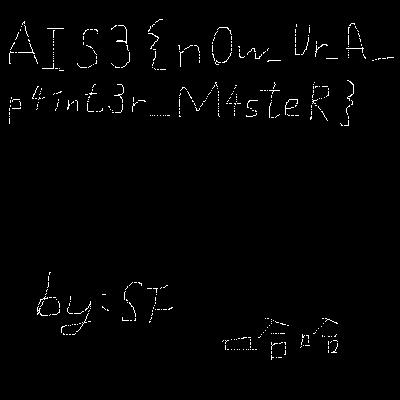 AIS3{n0w_Ur_A_
p4int3r_M4steR}
by:SF
哈哈